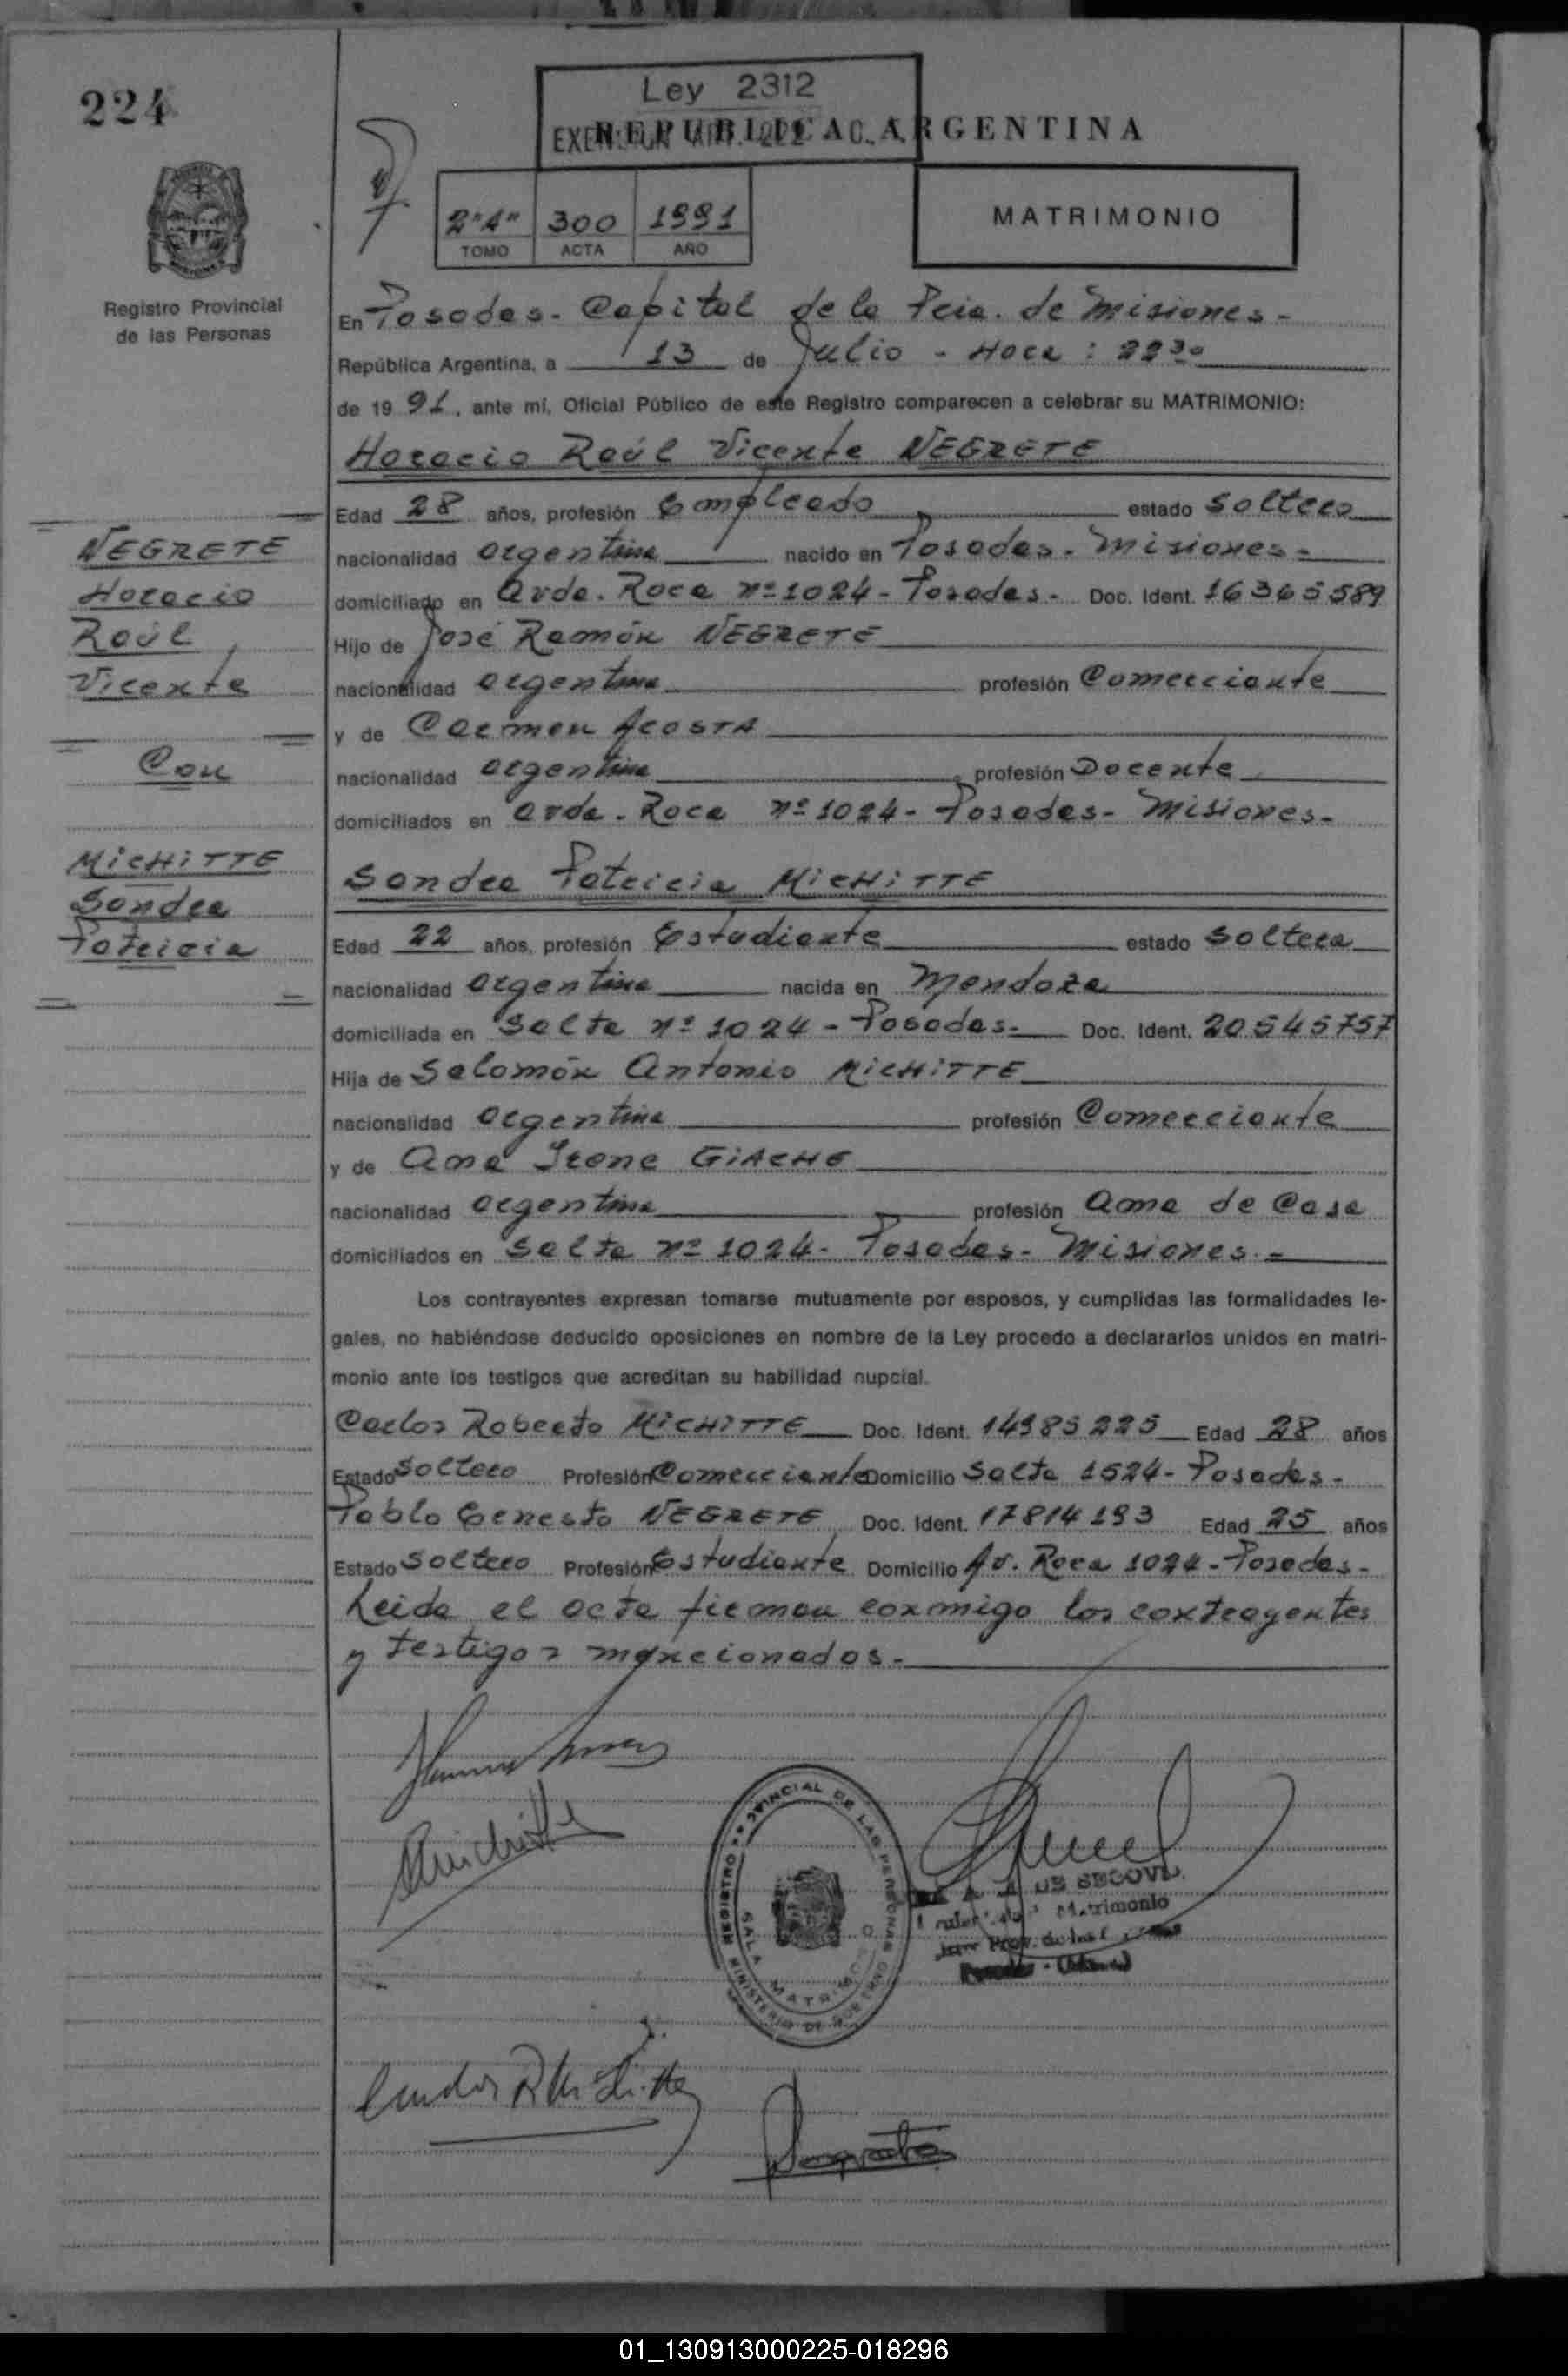 224
Ley 2312
REPUBLICA ARGENTINA
2"A" 300 1991
TOMO ACTA AÑO
MATRIMONIO
Registro Provincial
de las Personas
En Posadas - Capital de la Pcia. de Misiones -
República Argentina, a 13 de Julio - Hora : 22 30
de 19 91, ante mí, Oficial Público de este Registro comparecen a celebrar su MATRIMONIO:
Horacio Raúl Vicente NEGRETE
Edad 28 años, profesión Empleado estado Soltero
nacionalidad argentina nacido en Posadas - Misiones -
domiciliado en Avda. Roca nº 1024 - Posadas - Doc. Ident. 16365589
Hijo de José Ramón NEGRETE
nacionalidad argentina profesión Comerciante
y de Carmen ACOSTA
nacionalidad argentina profesión Docente
domiciliados en Avda. Roca nº 1024 - Posadas - Misiones -
NEGRETE
Horacio
Raúl
Vicente
Con
MICHITTE
Sandra
Patricia
Sandra Patricia MICHITTE
Edad 22 años, profesión Estudiante estado Soltera
nacionalidad argentina nacida en Mendoza
domiciliada en Salta nº 1024 - Posadas - Doc. Ident. 20545757
Hija de Salomón Antonio MICHITTE
nacionalidad argentina profesión Comerciante
y de Ana Irene GIACHE
nacionalidad argentina profesión Ama de Casa
domiciliados en Salta nº 1024 - Posadas - Misiones -
Los contrayentes expresan tomarse mutuamente por esposos, y cumplidas las formalidades le-
gales, no habiéndose deducido oposiciones en nombre de la Ley procedo a declararlos unidos en matri-
monio ante los testigos que acreditan su habilidad nupcial.
Carlos Roberto MICHITTE Doc. Ident. 14985225 Edad 28 años
Estado Soltero Profesión Comerciante Domicilio Salta 1524 - Posadas -
Pablo Ernesto NEGRETE Doc. Ident. 17814193 Edad 25 años
Estado Soltero Profesión Estudiante Domicilio Av. Roca 1024 - Posadas -
Leida el acta firman conmigo los contrayentes
y testigos mencionados -
REGISTRO PROVINCIAL DE LAS PERSONAS
MINISTERIO DE GOBIERNO
SALA MATRIMONIO
DE SEGOVIA
Matrimonio
01_130913000225-018296